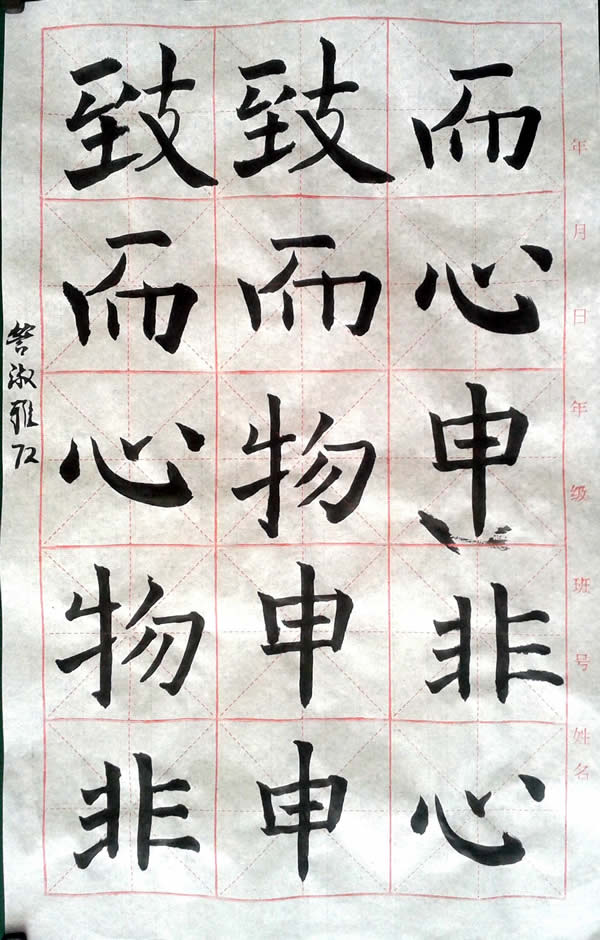 年月日年级班号姓名
而心申非心
致而物申申
致而心物非
淑雅